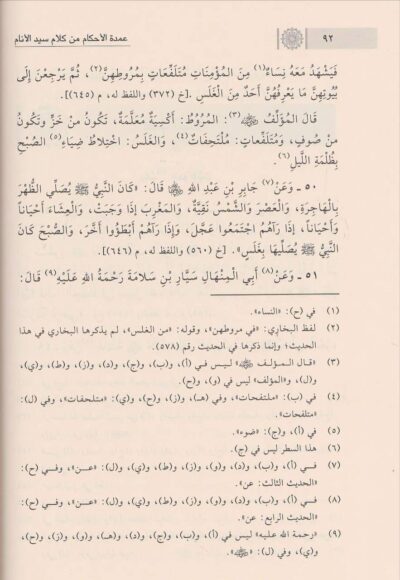 ٩٢
عمدة الأحكام من كلام سيد الأنام
فَيَشْهَدُ مَعَهُ نِسَاءٌ(١) مِنَ المُؤْمِنَاتِ مُتَلَفِّعَاتٍ بِمُرُوطِهِنَّ(٢)، ثُمَّ يَرْجِعْنَ إِلَى
بُيُوتِهِنَّ مَا يَعْرِفُهُنَّ أَحَدٌ مِنَ الْغَلَسِ. [خ (٣٧٢) واللفظ له، م (٦٤٥)].
قَالَ المُؤَلِّفُ ﵀(٣): المُرُوطُ: أَكْسِيَةٌ مُعَلَّمَةٌ، تَكُونُ مِنْ خَزٍّ وَتَكُونُ
مِنْ صُوفٍ، وَمُتَلَفِّعَاتٍ: مُلْتَحِفَاتٌ(٤)، وَالْغَلَسُ: اخْتِلاطُ ضِيَاءِ(٥) الصُّبْحِ
بِظُلْمَةِ اللَّيْلِ(٦).
٥٠ - وَعَنْ(٧) جَابِرِ بْنِ عَبْدِ اللهِ ﵄ قَالَ: «كَانَ النَّبِيُّ ﷺ يُصَلِّي الظُّهْرَ
بِالْهَاجِرَةِ، وَالْعَصْرَ وَالشَّمْسُ نَقِيَّةٌ، وَالمَغْرِبَ إِذَا وَجَبَتْ، وَالْعِشَاءَ أَحْيَاناً
وَأَحْيَاناً، إِذَا رَآهُمُ اجْتَمَعُوا عَجَّلَ، وَإِذَا رَآهُمْ أَبْطَؤُوا أَخَّرَ، وَالصُّبْحَ كَانَ
النَّبِيُّ ﷺ يُصَلِّيهَا بِغَلَسٍ». [خ (٥٦٠) واللفظ له، م (٦٤٦)].
٥١ - وَعَنْ(٨) أَبِي الْمِنْهَالِ سَيَّارِ بْنِ سَلَامَةَ رَحْمَةُ اللهِ عَلَيْهِ(٩) قَالَ:
(١) في (ح): «النساء».
(٢) لفظ البخاري: «في مروطهن»، وقوله: «من الغلس»، لم يذكرها البخاري في هذا
الحديث؛ وإنما ذكرها في الحديث رقم (٥٧٨).
(٣) «قال المؤلف ﵀» ليس في (أ)، و(ب)، و(ج)، و(د)، و(ز)، و(ط)، و(ي)،
و(ل)، و«المؤلف» ليس في (و)، و(ح).
(٤) في (ب): «ملتفحات»، وفي (هـ)، و(ز)، و(ح)، و(ي): «متلحفات»، وفي (ل):
«متلفحات».
(٥) في (أ)، و(ج): «ضوء».
(٦) هذا السطر ليس في (ج).
(٧) في (أ)، و(ب)، و(د)، و(و)، و(ز)، و(ط)، و(ي)، و(ل): «عن»، وفي (ح):
«الحديث الثالث: عن».
(٨) في (أ)، و(ب)، و(د)، و(و)، و(ز)، و(ط)، و(ي)، و(ل): «عن»، وفي (ح):
«الحديث الرابع: عن».
(٩) «رحمة الله عليه» ليس في (أ)، و(ب)، و(ج)، و(د)، و(و)، و(ز)، و(ح)،
و(ي)، وفي (ل): «﵁».